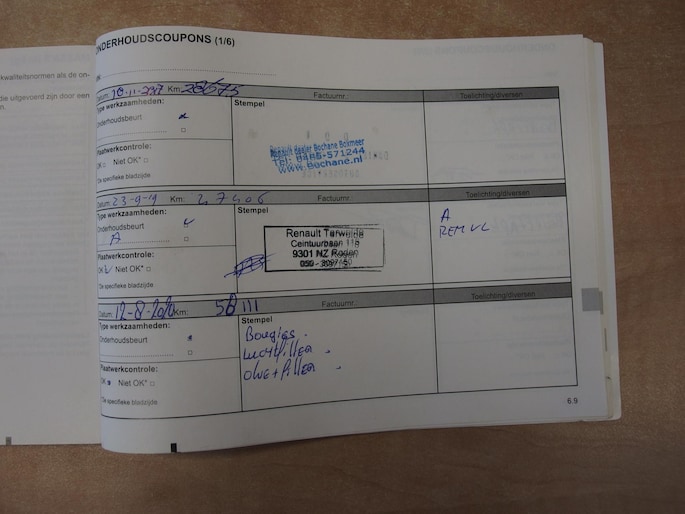 kwaliteitsnormen als de on-
die uitgevoerd zijn door een
n.
ONDERHOUDSCOUPONS (1/6)
Datum: 10-11-2017 Km: 20675 Factuurnr.: Toelichting/diversen
Type werkzaamheden:
Stempel
Onderhoudsbeurt
Plaatwerkcontrole:
OK Niet OK*
*De specifieke bladzijde
Renault dealer Bochane Boxmeer
Tel: 0485-571244
www.Bochane.nl
Datum: 23-9-19 Km: 27406 Factuurnr.: Toelichting/diversen
Type werkzaamheden:
Stempel
Onderhoudsbeurt
A
Plaatwerkcontrole:
OK Niet OK*
*De specifieke bladzijde
Renault Terwolde
Ceintuurbaan
9301 NZ Roden
A
REM VL
Datum: 12-8-2020 Km: 58111 Factuurnr.: Toelichting/diversen
Type werkzaamheden:
Stempel
Onderhoudsbeurt
Plaatwerkcontrole:
OK Niet OK*
*De specifieke bladzijde
Bougies.
Luchtfilter
Olie + filter
6.9